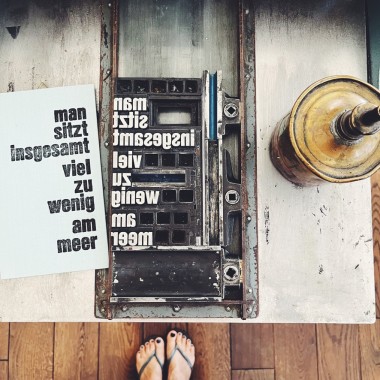 man
sitzt
insgesamt
viel
zu
wenig
am
meer
man
sitzt
insgesamt
viel
zu
wenig
am
meer